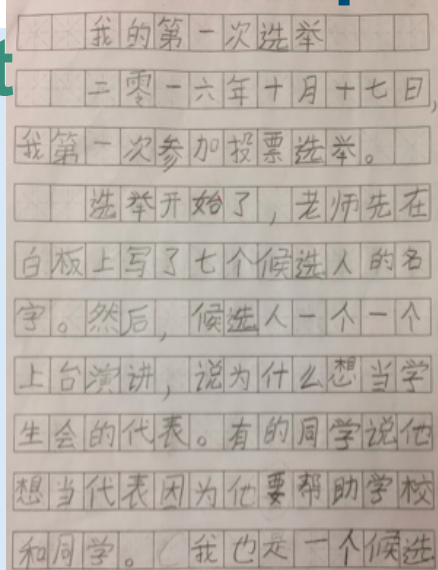 我的第一次选举
二零一六年十月十七日,
我第一次参加投票选举。
选举开始了,老师先在
白板上写了七个候选人的名
字。然后,候选人一个一个
上台演讲,说为什么想当学
生会的代表。有的同学说他
想当代表因为他要帮助学校
和同学。我也是一个候选